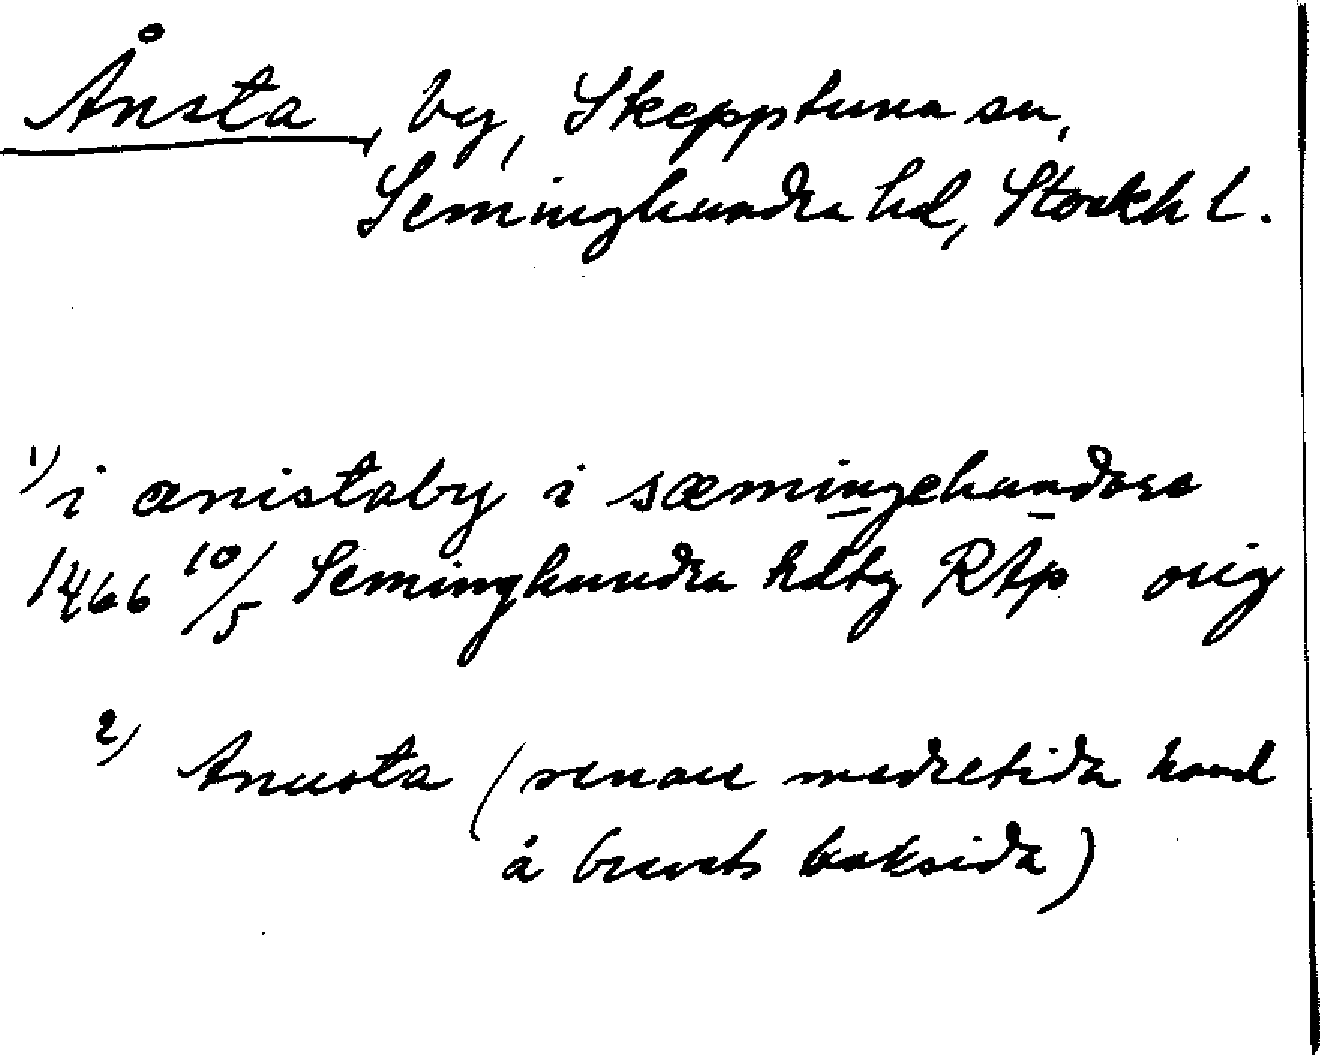 Ånsta, by, Skepptuna sn,
Seminghundra hd, Stockh l.
1) i ænistaby i sæmingehundora
1466 10/5 Seminghundra hdtg RAp orig
2) Anusta (senare medeltida hand
å brevets baksida)